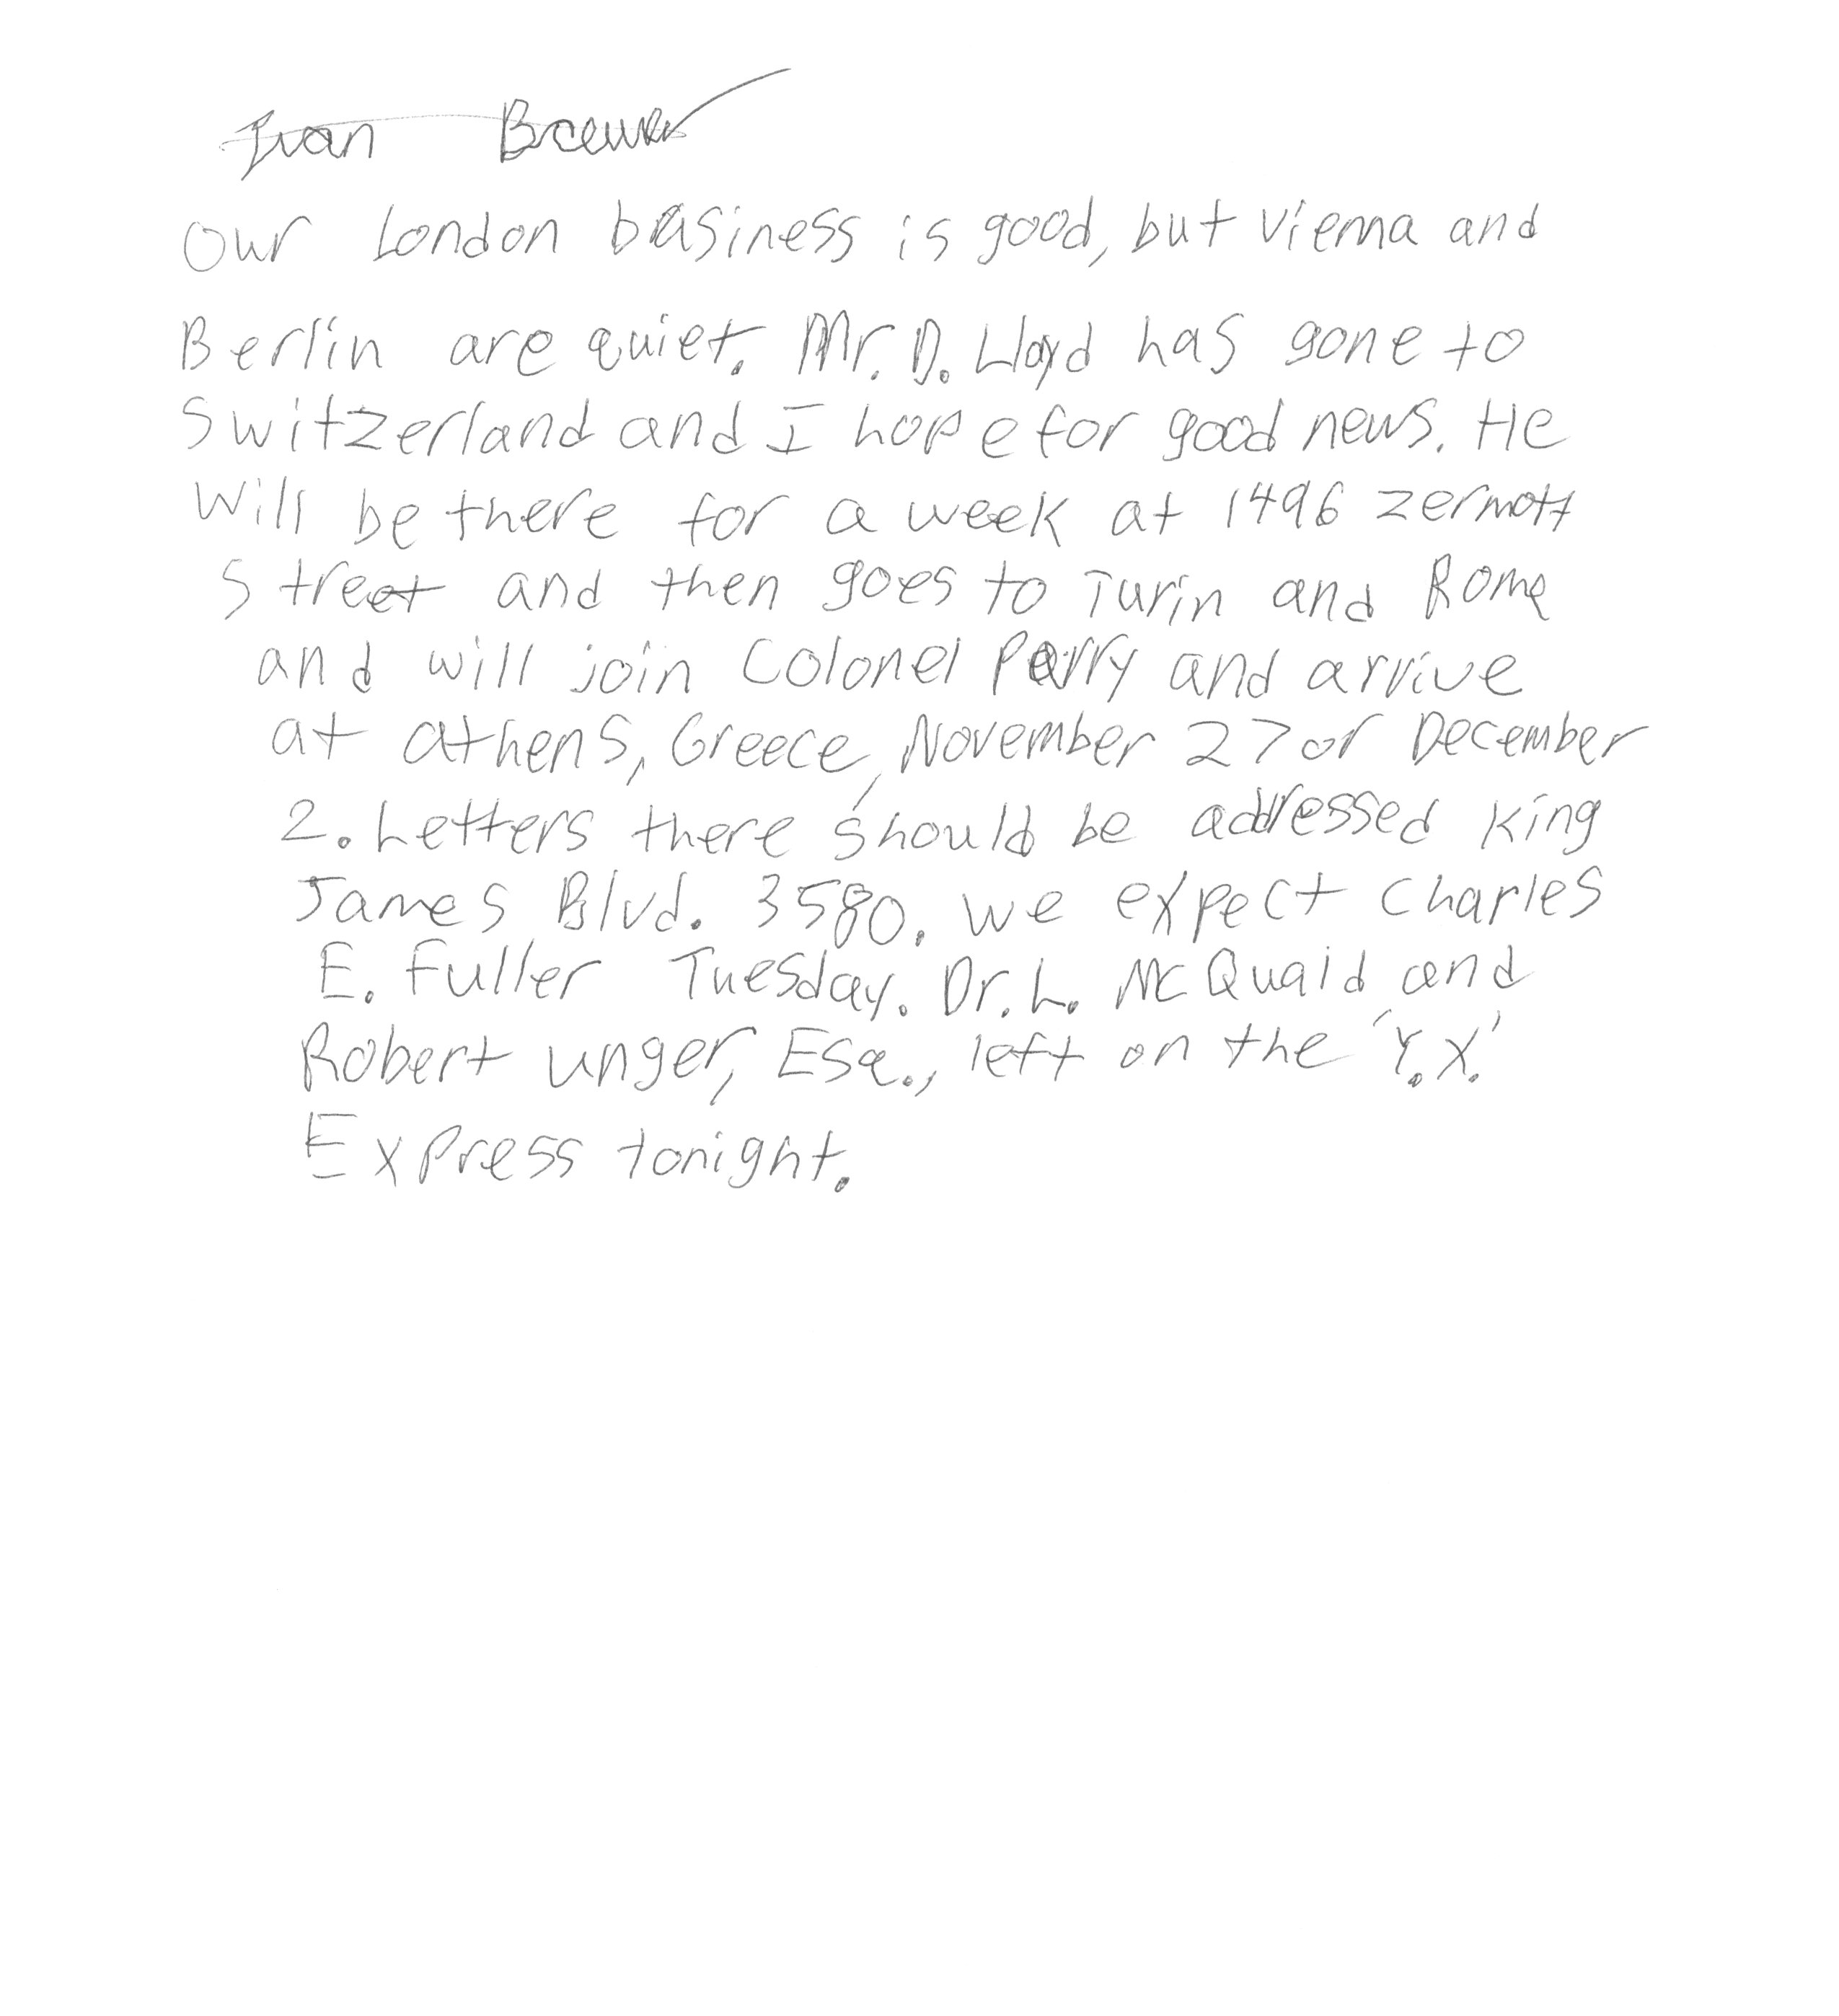 Ivan Brewer
Our London business is good, but vienna and
Berlin are quiet. Mr. D. Lloyd has gone to
Switzerland and I hope for good news. He
will be there for a week at 1496 zermott
street and then goes to Turin and Rome
and will join Colonel Parry and arrive
at athens, Greece, November 27 or December
2. Letters there should be addressed King
James Blvd. 3580. we expect Charles
E. Fuller Tuesday. Dr. L. McQuaid and
Robert unger, Esq., left on the 'Y.X.'
Express tonight.